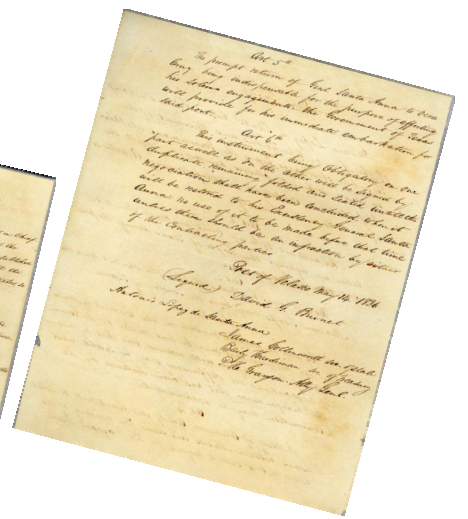 Art 5th
The prompt return of Genl Santa Anna to Vera
Cruz being indispensable for the purpose of effecting
his solemn engagements, the Government of Texas
will provide for his immediate embarkation for
said port.
Art 6th
This instrument being obligatory on one
part as well as on the other will be signed by
duplicate, remaining folded and sealed until the
negociation shall have been concluded, when it
will be restored to his Excellency General Santa
Anna no use of it to be made before that time
unless there should be an infraction by either
of the Contracting parties
Port of Velasco May 14 1836
(Signed) David G. Burnet
Antonio Lopez de Santa Anna
James Collinsworth Sec of State
Baily Hardiman Sec of Treasury
P W Grayson Atty Genl